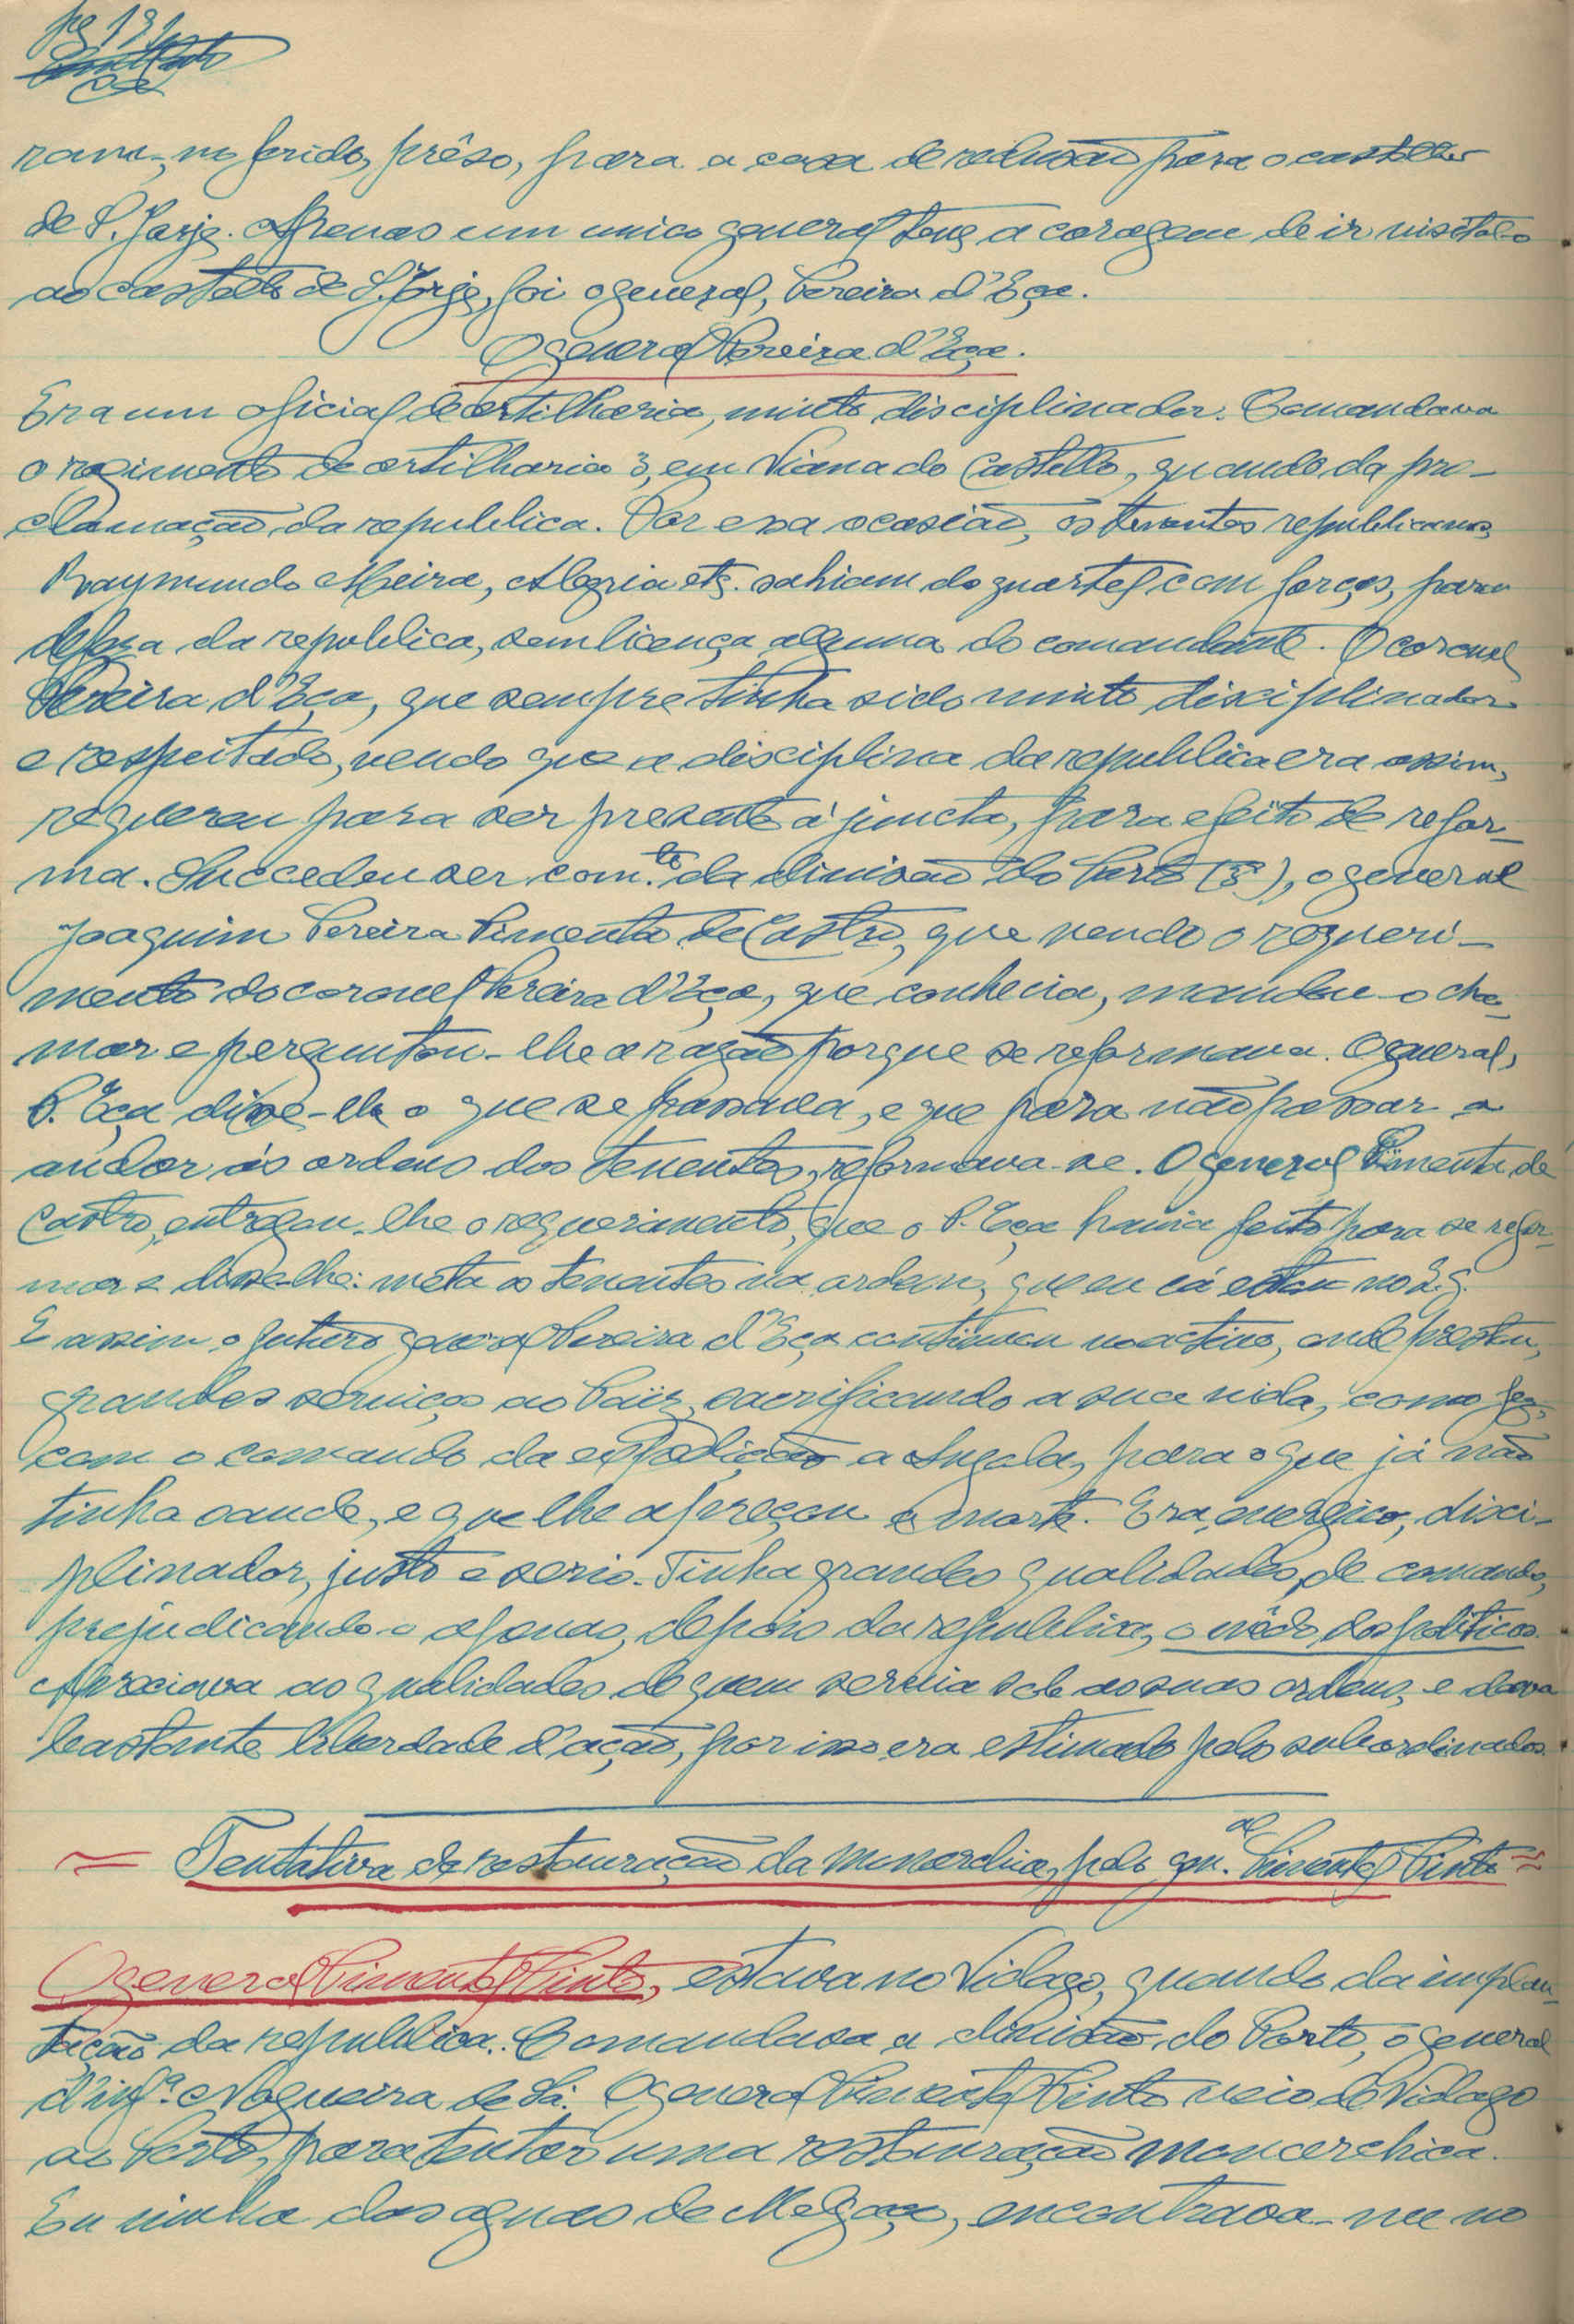 ram-no ferido, prêso, para a casa de reclusão para o castello
de S. Jorje. Apenas um unico general teve a coragem de ir visital-o
ao castello de S. Jorje, foi o general, Pereira d'Eça.
O general Pereira d'Eça.
Era um oficial de artilharia, muito disciplinador. Comandava
o regimento de artilharia 3, em Viana do Castello, quando da pro-
clamação da republica. Por essa ocasião, os tenentes republicanos
Raymundo Meira, Alegria etc. sahiam do quartel com forças, para
defeza da republica, sem licença alguma do comandante. O coronel
Pereira d'Eça, que sempre tinha sido muito disciplinador
e respeitado, vendo que a disciplina da republica era assim,
requereu para ser presente á juncta, para efeito de refor-
ma. Succedeu ser com.te da divisão do Porto (3ª), o general
Joaquim Pereira Pimenta de Castro, que vendo o requeri-
mento do coronel Pereira d'Eça, que conhecia, mandou-o cha-
mar e perguntou-lhe a razão porque se reformava. O general,
P. Eça disse-lhe o que se passava, e que para não passar a
andar ás ordens dos tenentes, reformava-se. O general Pimenta de
Castro, entregou-lhe o requerimento, que o P. Eça havia feito para se refor-
mar e disse-lhe: meta os tenentes na ordem, que eu cá estou no Q.G.
E assim o futuro general Pereira d'Eça continuou no activo, onde prestou,
grandes serviços ao Paiz, sacrificando a sua vida, como fez,
com o comando da expedição a Angola, para o que já não
tinha saude, e que lhe apreçou a morte. Era, energico, disci-
plinador, justo e serio. Tinha grandes qualidades, de comando,
prejudicando-o apenas, depois da republica, o mêdo dos politicos.
Apreciava as qualidades de quem servia sob as suas ordens, e dava
bastante liberdade d'ação, por isso era estimado pelos subordinados.
= Tentativa de restauração da monarchia, pelo gen.al Pimentel Pinto =
O general Pimentel Pinto, estava no Vidago, quando da implan-
tação da republica. Comandava a divisão, do Porto, o general
d'inf.ª Nogueira de Sá. O general Pimentel Pinto veio de Vidago
ao Porto, para tentar uma restauração monarchica.
Eu vinha das aguas de Melgaço, encontrava-me no